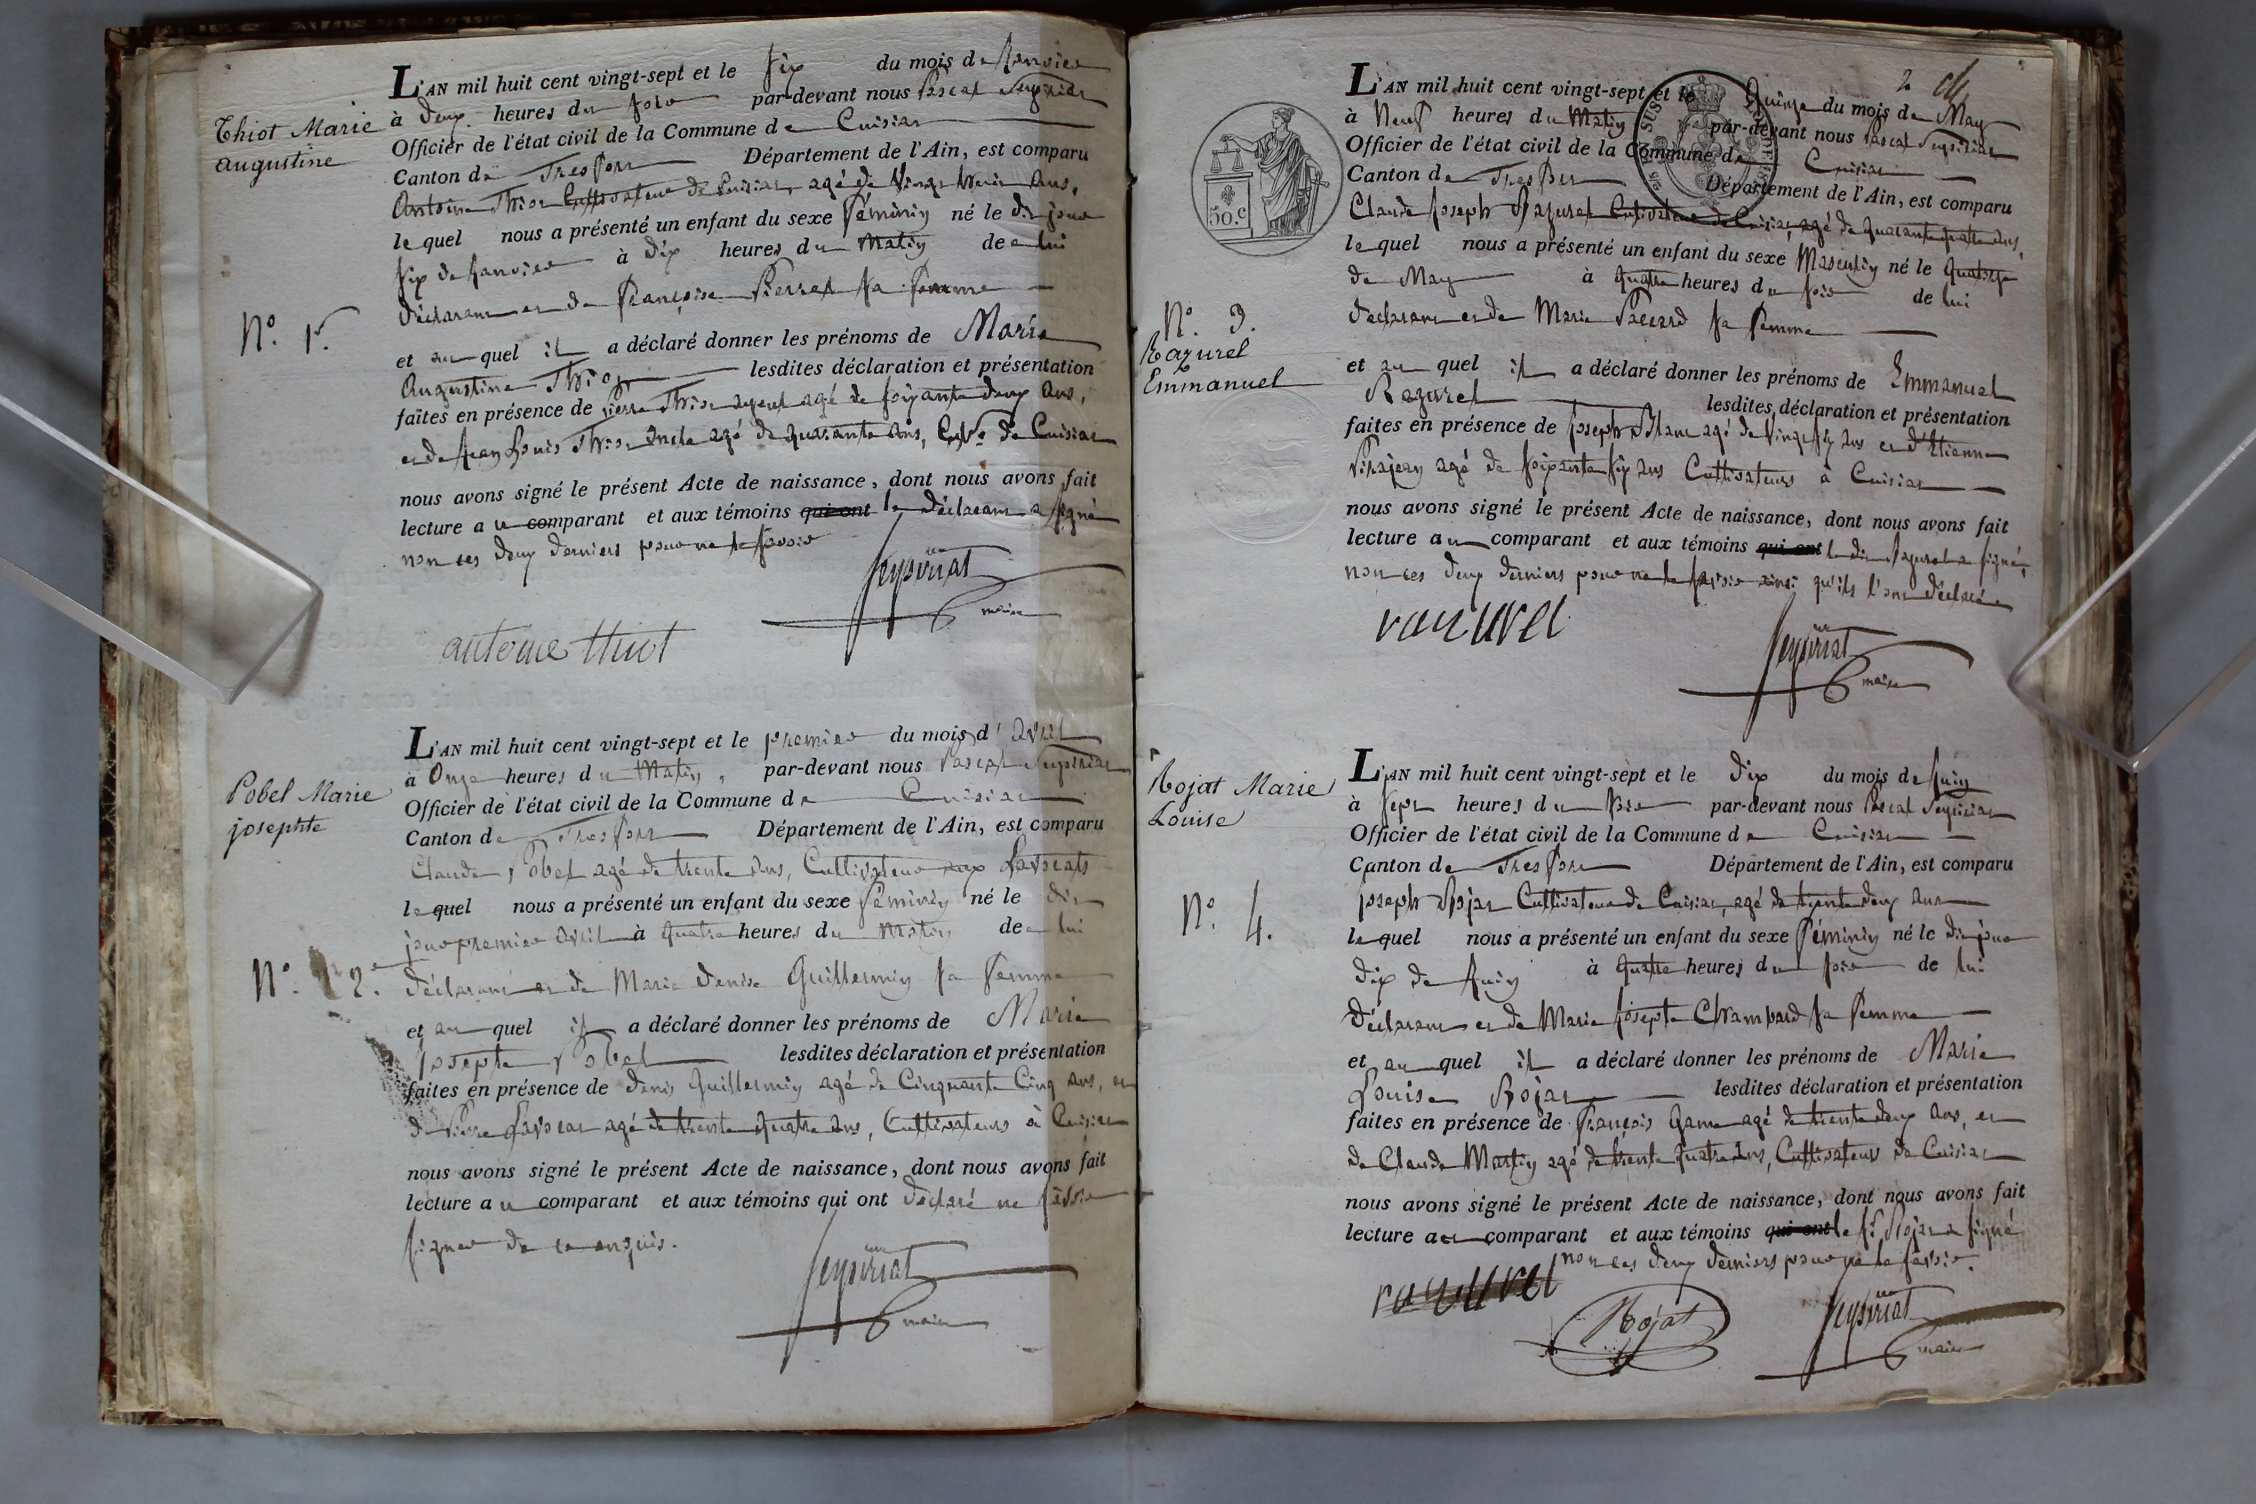 Thiot Marie
augustine
N.o 1.r
L'AN mil huit cent vingt-sept et le six du mois de Janvier
à deux heures du soir par-devant nous Pascal Seyvriat
Officier de l'état civil de la Commune de Cuisiat
Canton de Treffort Département de l'Ain, est comparu
Antoine Thiot Cultivateur de Cuisiat, agé de Vingt huit ans,
lequel nous a présenté un enfant du sexe féminin né le dit jour
six de Janvier à dix heures du Matin de lui
déclarant et de Françoise Perret sa femme
et au quel il a déclaré donner les prénoms de Marie
Augustine Thiot lesdites déclaration et présentation
faites en présence de Pierre Thiot ayeul agé de soixante deux ans,
et de Jean Louis Thiot Oncle agé de quarante ans, Cult.rs de Cuisiat
nous avons signé le présent Acte de naissance, dont nous avons fait
lecture au comparant et aux témoins qui ont le déclarant a signé
non ces deux derniers pour ne le savoir
Seyvriat
maire
antoine thiot
Pobel Marie
josephte
N.o 2.
L'AN mil huit cent vingt-sept et le premier du mois d'avril
à Onze heures du Matin, par-devant nous Pascal Seyvriat
Officier de l'état civil de la Commune de Cuisiat
Canton de Treffort Département de l'Ain, est comparu
Claude Pobel agé de trente ans, Cultivateur aux Lavocats
lequel nous a présenté un enfant du sexe féminin né le dit
jour premier avril à quatre heures du matin de lui
déclarant et de Marie Denise Guillermin sa femme
et au quel il a déclaré donner les prénoms de Marie
Josephte Pobel lesdites déclaration et présentation
faites en présence de Denis Guillermin agé de Cinquante Cinq ans, et
de Pierre Lavocat agé de trente quatre ans, Cultivateurs à Cuisiat
nous avons signé le présent Acte de naissance, dont nous avons fait
lecture au comparant et aux témoins qui ont déclaré ne savoir
signer de ce enquis.
Seyvriat
maire
2
50.c
N.o 3.
Razurel
Emmanuel
L'AN mil huit cent vingt-sept et le Quinze du mois de May
à Neuf heures du Matin par-devant nous Pascal Seyvriat
Officier de l'état civil de la Commune de Cuisiat
Canton de Treffort Département de l'Ain, est comparu
Claude Joseph Razurel Cultivateur de Cuisiat, agé de quarante quatre ans,
lequel nous a présenté un enfant du sexe Masculin né le quatorze
de May à quatre heures du soir de lui
déclarant et de Marie Pacard sa femme
et au quel il a déclaré donner les prénoms de Emmanuel
Razurel lesdites déclaration et présentation
faites en présence de Joseph Blanc agé de Vingt six ans et d'Etienne
Virajean agé de soixante six ans Cultivateurs à Cuisiat
nous avons signé le présent Acte de naissance, dont nous avons fait
lecture au comparant et aux témoins qui ont le dit Razurel a signé,
non ces deux derniers pour ne le savoir ainsi qu'ils l'ont déclaré
razurel
Seyvriat
maire
Rojat Marie
Louise
N.o 4.
L'AN mil huit cent vingt-sept et le dix du mois de Juin
à sept heures du soir par-devant nous Pascal Seyvriat
Officier de l'état civil de la Commune de Cuisiat
Canton de Treffort Département de l'Ain, est comparu
Joseph Rojat Cultivateur de Cuisiat, agé de trente deux ans
lequel nous a présenté un enfant du sexe féminin né le dit jour
dix de Juin à quatre heures du soir de lui
déclarant et de Marie Josephte Chambard sa femme
et au quel il a déclaré donner les prénoms de Marie
Louise Rojat lesdites déclaration et présentation
faites en présence de François Game agé de trente deux ans, et
de Claude Martin agé de trente quatre ans, Cultivateurs de Cuisiat
nous avons signé le présent Acte de naissance, dont nous avons fait
lecture au comparant et aux témoins qui ont le s.r Rojat a signé
non ces deux derniers pour ne le savoir.
razurel
Rojat
Seyvriat
maire